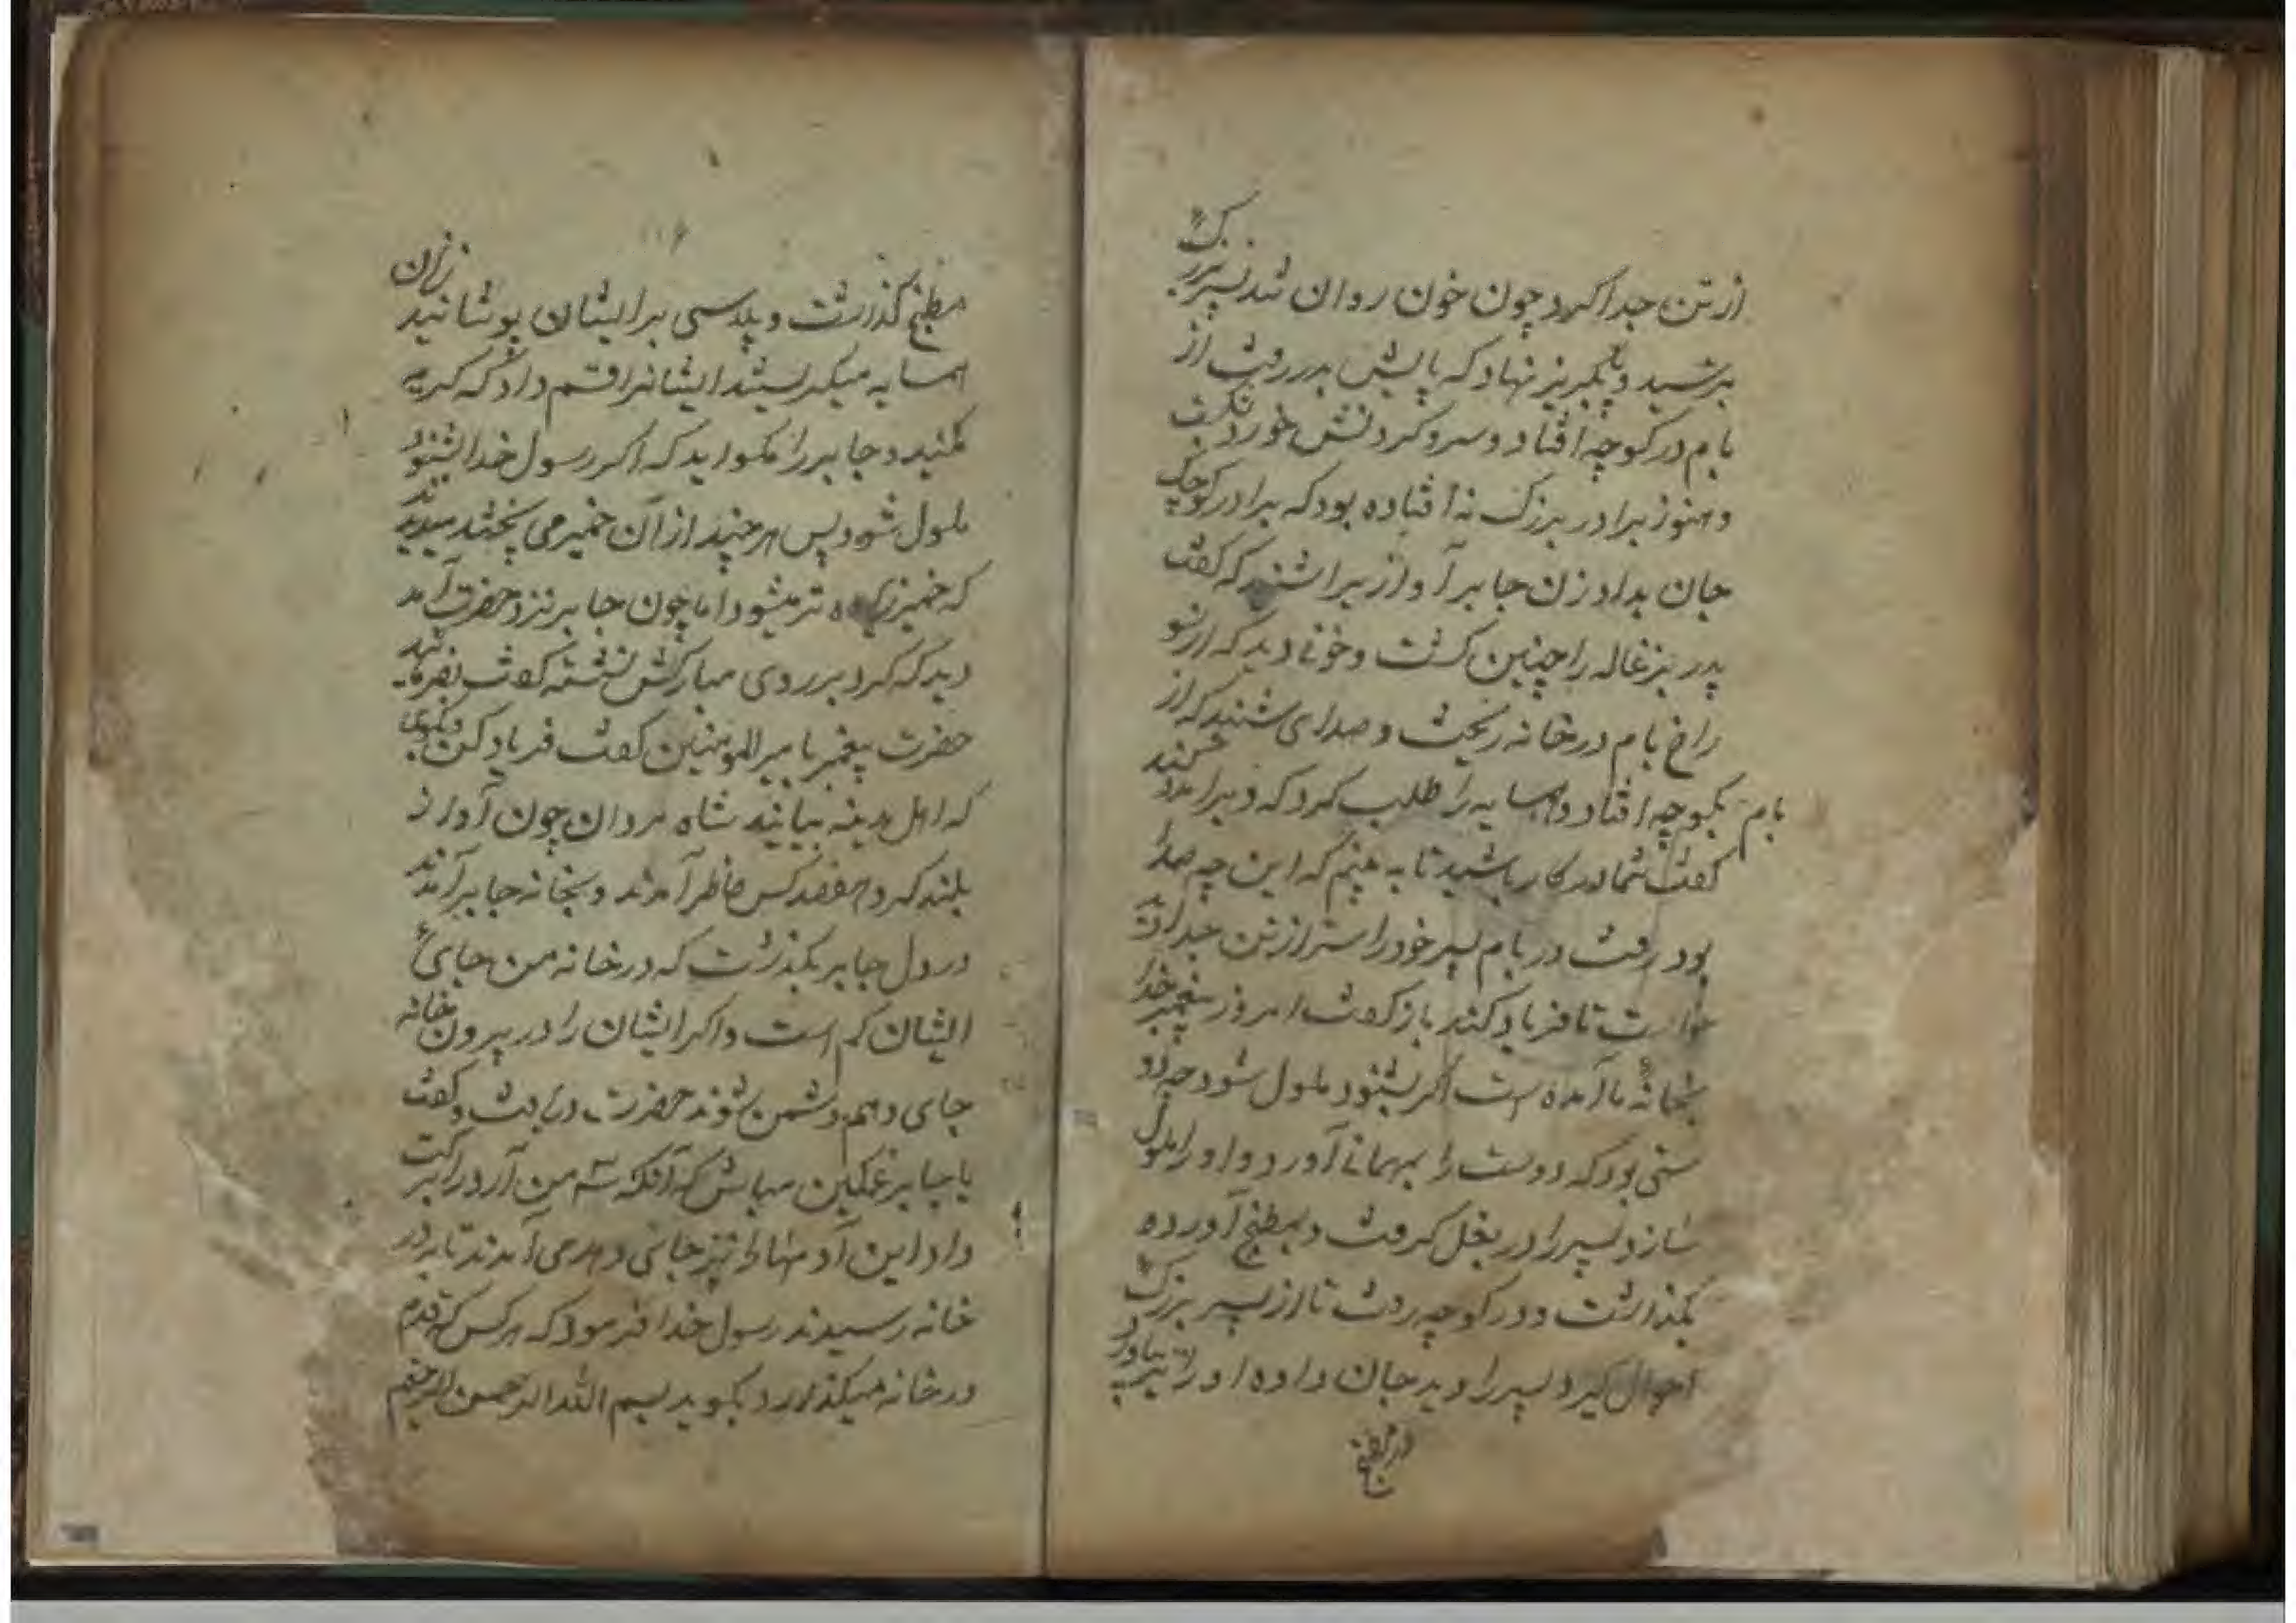 از تن جدا کرد چون خون روان شد پسر بزرگ
بترسید و پا بگریز نهاد که پایش بدر رفت از
بام در کوچه افتاد و سر و گردنش خورد بشکست
و هنوز برادر بزرگ نه افتاده بود که برادر کوچک
جان بداد زن جابر آواز پسر را شنید که گفت
پدر بزغاله را چنین کشت و خونی دید که از سو
راخ بام در خانه ریخت و صدای شنید که از
بام بکوچه افتاد و همسایه را طلب کرد که ویرا مدد کنند
گفت شما در کار باشید تا به بینم که این چه صدا
بود رفت در بام پسر خود را سر از تن جدا یافت
خواست تا فریاد کند باز گفت امروز پیغمبر خدا
بخانهٔ ما آمده است اگر بشنود ملول شود چه دو
ستی بود که دوست را بمهمانی آورد و او را ملول
سازد پسر را در بغل گرفت و بمطبخ آورده
بگذاشت و در کوچه رفت تا از پسر بزرگ
احوال گیرد پسر را دید جان داده او را نیز بیاورد
در مطبخ
۱۱۶
مطبخ گذاشت و پلاسی بر ایشان پوشانید زنان
همسایه میگریستند ایشانرا قسم داد که گریه
مکنید و جابر را مگوئید که اگر رسول خدا بشنود
ملول شود پس هر چند از آن خمیر می پختند میدیدند
که خمیر زیاده تر میشود اما چون جابر نزد حضرت آمد
دید که گرد بر روی مبارکش نشسته گفت
حضرت پیغمبر با امیرالمومنین گفت فریاد کن و بگوی
که اهل مدینه بیایند شاه مردان چون آواز
بلند کرد هفتصد کس حاضر آمدند و بخانه جابر آمدند
در دل جابر بگذشت که در خانه من جای
ایشان کم است و اگر ایشان را در بیرون خانه
جای دهم دشمن شوند حضرت دریافت و گفت
یا جابر غمگین مباش که آنکه سه من آرد را برکت
داد این آدمها را نیز جای دهد می آمدند تا بدر
خانه رسیدند رسول خدا فرمود که هر کس که قدم
در خانه میگذارد بگوید بسم الله الرحمن الرحیم